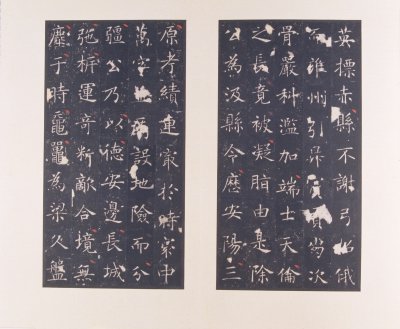 英標赤縣不謝弓治俄
雍州引
骨嚴科濫加端士天倫
之長竟被凝脂由是除
公為汲縣令歷安陽三
原考績連最於時家中
萬
設地險而分
疆公乃以德安邊長城
弛柝運奇料敵合境無
塵于時黿鼉為梁久盤